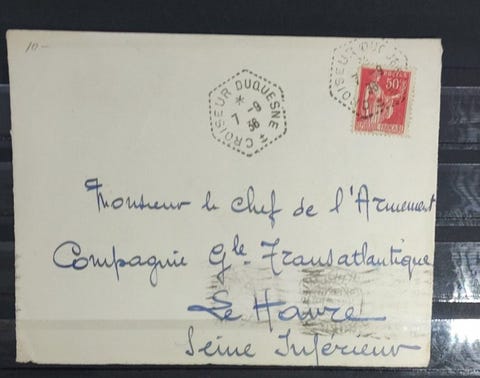 10-
CROISEUR DUQUESNE
7 -9 36
CROISEUR DUQ
50c
Monsieur le Chef de l'Armement
Compagnie Gle Transatlantique
Le Havre
Seine Inférieur